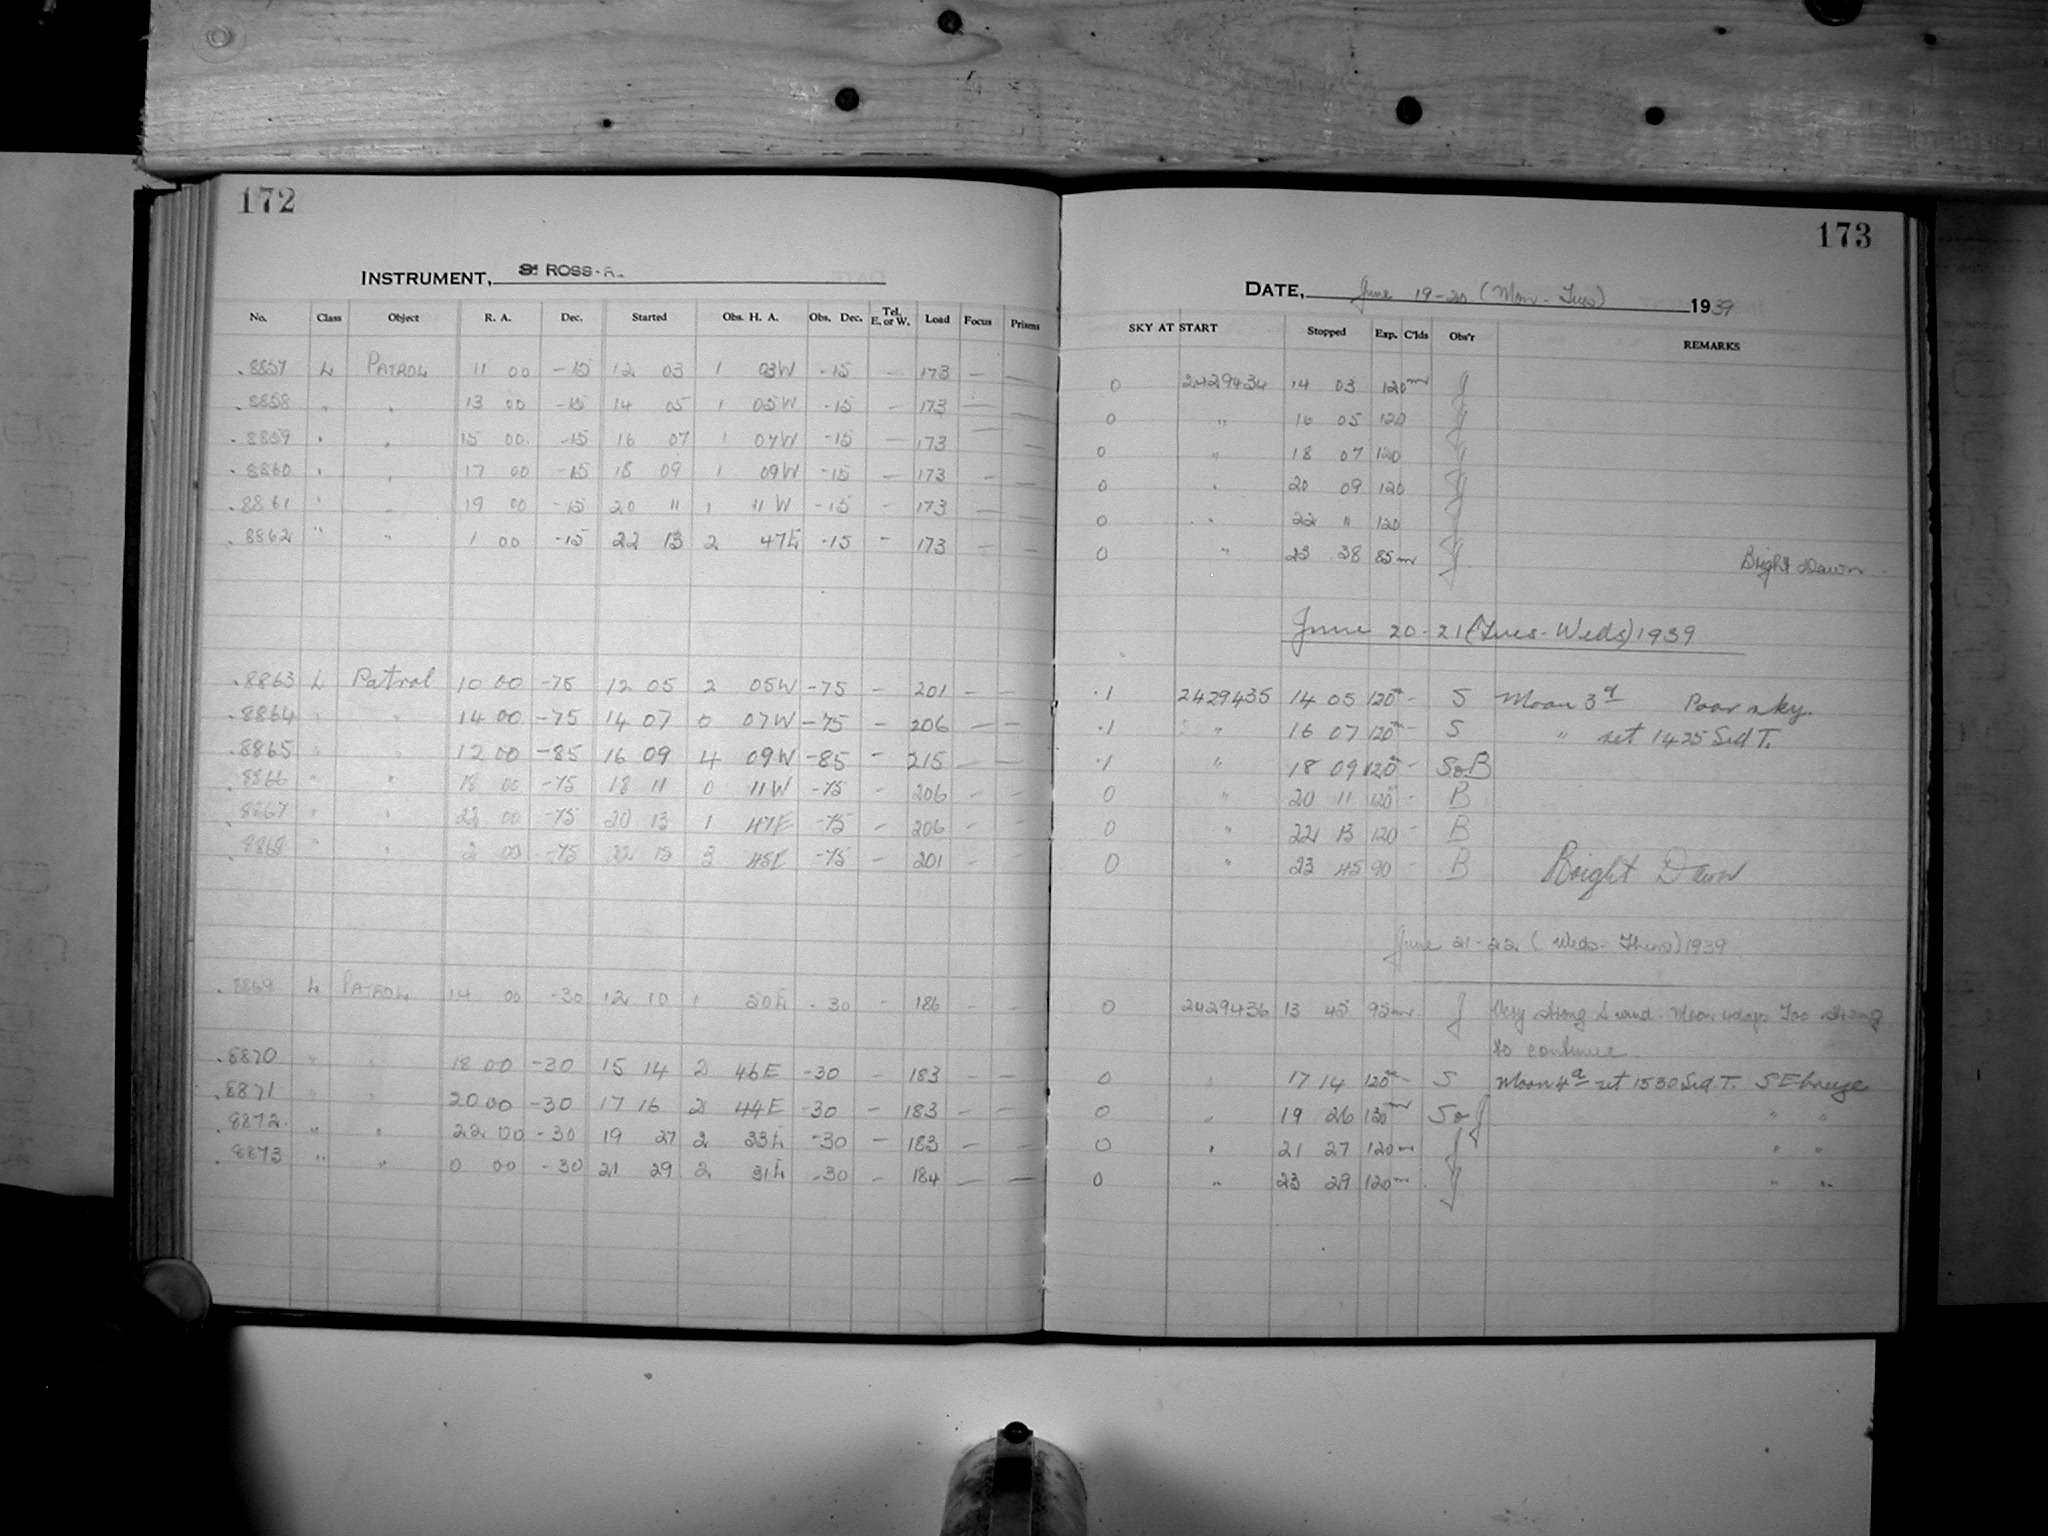 172
INSTRUMENT, ROSS
No. Class Object R. A. Dec. Started Obs. H. A. Obs. Dec. Tel. E. or W. Load Focus Prisms
8857 L PATROL 11 00 -15 12 03 1 03W -15 - 173 - -
8858 " " 13 00 -15 14 05 1 05W -15 - 173 - -
8859 " " 15 00 -15 16 07 1 07W -15 - 173 - -
8860 " " 17 00 -15 18 09 1 09W -15 - 173 - -
8861 " " 19 00 -15 20 11 1 11W -15 - 173 - -
8862 " " 1 00 -15 22 13 2 47E -15 - 173 - -
8863 L Patrol 10 00 -75 12 05 2 05W -75 - 201 - -
8864 " " 14 00 -75 14 07 0 07W -75 - 206 - -
8865 " " 12 00 -85 16 09 4 09W -85 - 215 - -
8866 " " 18 00 -75 18 11 0 11W -75 - 206 - -
8867 " " 22 00 -75 20 13 1 47E -75 - 206 - -
8868 " " 2 00 -75 22 15 3 45E -75 - 201 - -
8869 L PATROL 14 00 -30 12 10 1 50E -30 - 186 - -
8870 " " 18 00 -30 15 14 2 46E -30 - 183 - -
8871 " " 20 00 -30 17 16 2 44E -30 - 183 - -
8872 " " 22 00 -30 19 27 2 33E -30 - 183 - -
8873 " " 0 00 -30 21 29 2 31E -30 - 184 - -
173
DATE, June 19-20 (Mon-Tues) 1939
SKY AT START Stopped Exp. C'lds Obs'r REMARKS
0 2429434 14 03 120m J
0 " 16 05 120 J
0 " 18 07 120 J
0 " 20 09 120 J
0 " 22 11 120 J
0 " 23 38 85m J Bright Dawn
June 20-21 (Tues-Weds) 1939
.1 2429435 14 05 120m - S Moon 3d Poor sky.
.1 " 16 07 120m - S " set 1425 Sid T.
.1 " 18 09 120m - S&B
0 " 20 11 120 - B
0 " 22 13 120 - B
0 " 23 45 90 - B Bright Dawn
June 21-22 (Weds-Thurs) 1939
0 2429436 13 45 95m J Very strong S wind. Moon Too strong
to continue
0 " 17 14 120m - S Moon 4d set 1530 Sid T. S E breeze
0 " 19 26 130m S&J " "
0 " 21 27 120m J " "
0 " 23 29 120m J " "